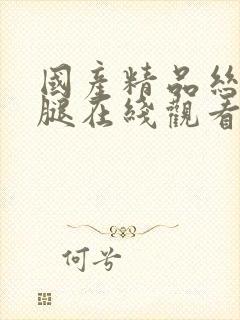 國産精品絲
腿在綫觀看
何兮